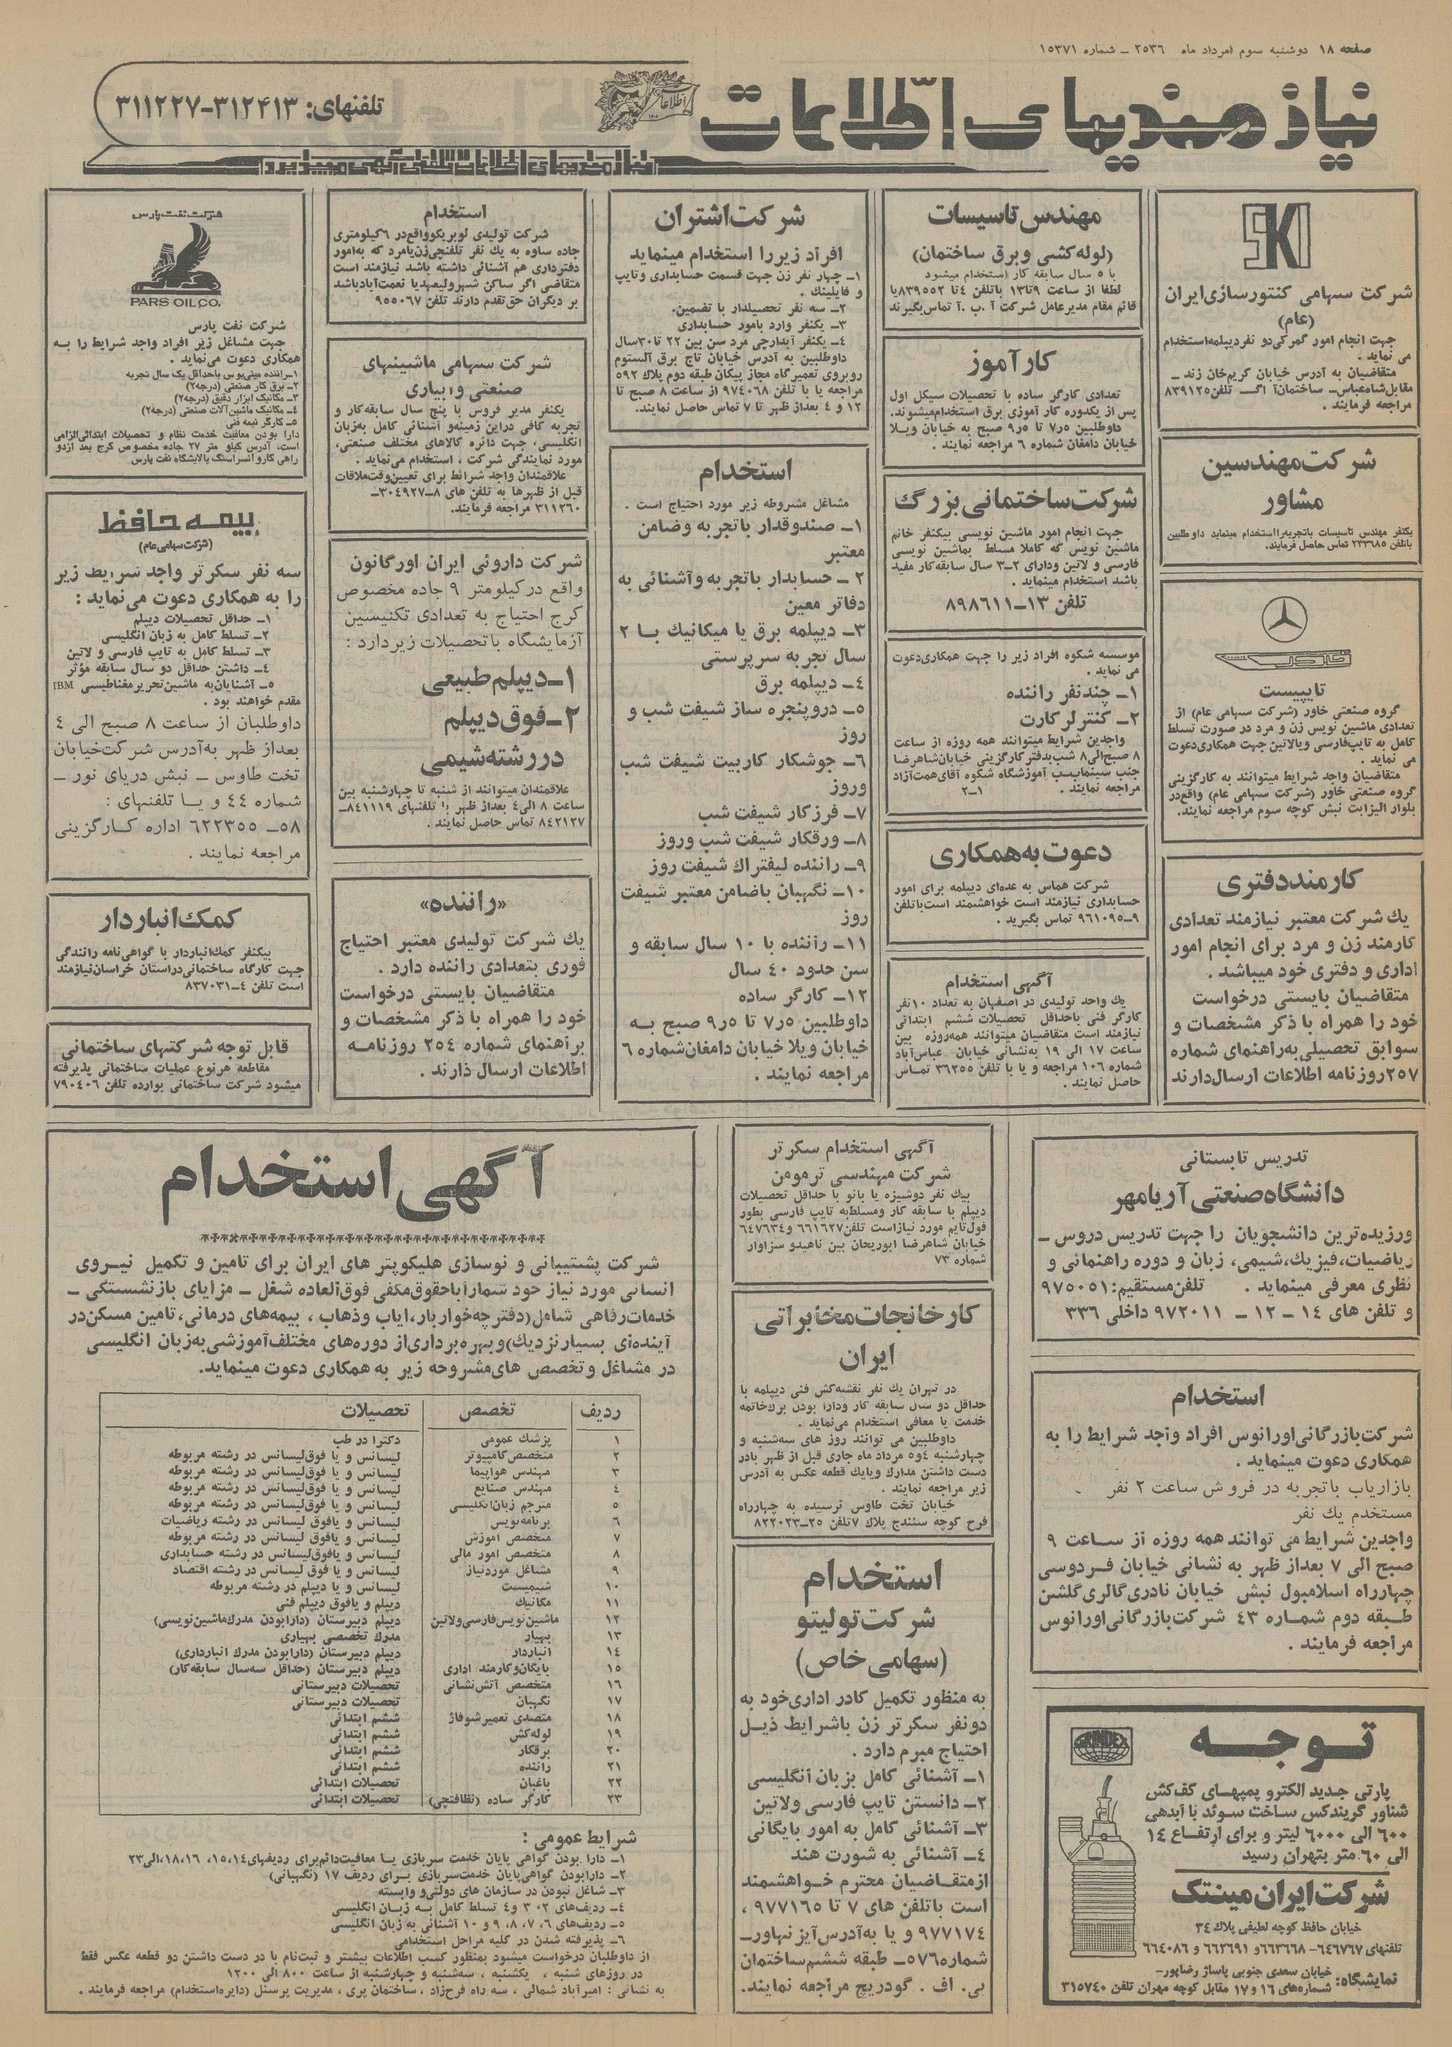 صفحه ۱۸ دوشنبه سوم امرداد ماه ۲۵۳۶ ــ شماره ۱۵۳۷۱
نیازمندیهای اطلاعات
اطلاعات
تلفنهای: ۳۱۲۴۱۳-۳۱۱۲۲۷
نیازمندیهای اطلاعات تلفنی آگهی میپذیرد
شرکت سهامی کنتورسازی ایران
(عام)
جهت انجام امور گمرکی دو نفر دیپلمه استخدام
می نماید .
متقاضیان به آدرس خیابان کریم‌خان زند ــ
مقابل شاه‌عباس ــ ساختمان آ اگ ــ تلفن ۸۳۹۱۲۵
مراجعه فرمایند .
شرکت مهندسین
مشاور
یکنفر مهندس تاسیسات باتجربه را استخدام مینماید داوطلبین
با تلفن ۲۳۳۶۸۵ تماس حاصل فرمایند.
خاور
تایپیست
گروه صنعتی خاور (شرکت سهامی عام) از
تعدادی ماشین نویس زن و مرد در صورت تسلط
کامل به تایپ فارسی و یالاتین جهت همکاری دعوت
می نماید .
متقاضیان واجد شرایط میتوانند به کارگزینی
گروه صنعتی خاور (شرکت سهامی عام) واقع در
بلوار الیزابت نبش کوچه سوم مراجعه نمایند.
کارمند دفتری
یك شرکت معتبر نیازمند تعدادی
کارمند زن و مرد برای انجام امور
اداری و دفتری خود میباشد .
متقاضیان بایستی درخواست
خود را همراه با ذکر مشخصات و
سوابق تحصیلی به راهنمای شماره
۲۵۷ روزنامه اطلاعات ارسال دارند
مهندس تاسیسات
(لوله کشی و برق ساختمان)
با ۵ سال سابقه کار استخدام میشود
لطفا از ساعت ۹ تا ۱۳ با تلفن ۴ تا ۸۳۹۵۵۲ با
قائم مقام مدیرعامل شرکت آ . ب . آ تماس بگیرند
کارآموز
تعدادی کارگر ساده با تحصیلات سیکل اول
پس از یکدوره کار آموزی برق استخدام میشوند.
داوطلبین ۷ر۵ تا ۹ر۵ صبح به خیابان ویلا
خیابان دامغان شماره ۶ مراجعه نمایند .
شرکت ساختمانی بزرگ
جهت انجام امور ماشین نویسی بیکنفر خانم
ماشین نویس که کاملا مسلط بماشین نویسی
فارسی و لاتین و دارای ۲ــ۳ سال سابقه کار مفید
باشد استخدام مینماید .
تلفن ۱۳ــ۸۹۸۶۱۱
موسسه شکوه افراد زیر را جهت همکاری دعوت
می نماید .
۱ــ چند نفر راننده
۲ــ کنترلر کارت
واجدین شرایط میتوانند همه روزه از ساعت
۸ صبح الی ۸ شب بدفتر کارگزینی خیابان شاهرضا
جنب سینما پ ب آموزشگاه شکوه آقای همت‌آزاد
مراجعه نمایند . ۱ــ۲
دعوت به همکاری
شرکت هماس به عده‌ای دیپلمه برای امور
حسابداری نیازمند است خواهشمند است با تلفن
۹ــ۹۶۱۰۹۵ تماس بگیرید .
آگهی استخدام
یك واحد تولیدی در اصفهان به تعداد ۱۰ نفر
کارگر فنی با حداقل تحصیلات ششم ابتدائی
نیازمند است متقاضیان میتوانند همه‌روزه بین
ساعت ۱۷ الی ۱۹ به نشانی خیابان عباس‌آباد
شماره ۱۰۶ مراجعه و یا با تلفن ۳۶۲۵۵ تماس
حاصل نمایند .
شرکت اشتران
افراد زیر را استخدام مینماید
۱ــ چهار نفر زن جهت قسمت حسابداری و تایپ
و فایلینك .
۲ــ سه نفر تحصیلدار با تضمین.
۳ــ یکنفر وارد بامور حسابداری
۴ــ یکنفر آبدارچی مرد سن بین ۲۲ تا ۳۰ سال
داوطلبین به آدرس خیابان تاج برق آلستوم
روبروی تعمیرگاه مجاز پیکان طبقه دوم پلاك ۵۹۲
مراجعه یا با تلفن ۹۷۴۰۶۸ از ساعت ۸ صبح تا
۱۲ و ۴ بعداز ظهر تا ۷ تماس حاصل نمایند.
استخدام
مشاغل مشروطه زیر مورد احتیاج است .
۱ــ صندوقدار باتجربه وضامن
معتبر
۲ ــ حسابدار باتجربه و آشنائی به
دفاتر معین
۳ــ دیپلمه برق یا میکانیك با ۲
سال تجربه سرپرستی
۴ــ دیپلمه برق
۵ــ دروپنجره ساز شیفت شب و
روز
۶ــ جوشکار کاربیت شیفت شب
وروز
۷ــ فرزکار شیفت شب
۸ــ ورقکار شیفت شب وروز
۹ــ راننده لیفتراك شیفت روز
۱۰ــ نگهبان باضامن معتبر شیفت
روز
۱۱ــ راننده با ۱۰ سال سابقه و
سن حدود ۴۰ سال
۱۲ــ کارگر ساده
داوطلبین ۷ر۵ تا ۹ر۵ صبح به
خیابان ویلا خیابان دامغان شماره ۶
مراجعه نمایند .
استخدام
شرکت تولیدی لوبریکو واقع در ۶ کیلومتری
جاده ساوه به یك نفر تلفنچی زن یا مرد که به امور
دفترداری هم آشنائی داشته باشد نیازمند است
متقاضی اگر ساکن شهر ولیعهد یا نعمت‌آباد باشد
بر دیگران حق تقدم دارند تلفن ۹۵۵۰۶۷
شرکت سهامی ماشینهای
صنعتی و آبیاری
یکنفر مدیر فروش با پنج سال سابقه کار و
تجربه کافی در این زمینه و آشنائی کامل به زبان
انگلیسی، جهت دائره کالاهای مختلف صنعتی،
مورد نمایندگی شرکت ، استخدام می‌نماید .
علاقمندان واجد شرائط برای تعیین وقت ملاقات
قبل از ظهرها به تلفن های ۸ــ۳۰۴۹۲۷ــ
۳۱۱۲۶۰ مراجعه فرمایند.
شرکت داروئی ایران اورگانون
واقع در کیلومتر ۹ جاده مخصوص
کرج احتیاج به تعدادی تکنیسین
آزمایشگاه با تحصیلات زیر دارد :
۱ــ دیپلم طبیعی
۲ــ فوق دیپلم
در رشته شیمی
علاقمندان میتوانند از شنبه تا چهارشنبه بین
ساعت ۸ الی ۴ بعداز ظهر با تلفنهای ۸۴۱۱۱۹ــ
۸۴۲۱۲۷ تماس حاصل نمایند .
«راننده»
یك شرکت تولیدی معتبر احتیاج
فوری بتعدادی راننده دارد .
متقاضیان بایستی درخواست
خود را همراه با ذکر مشخصات و
براهنمای شماره ۲۵۴ روزنامه
اطلاعات ارسال دارند .
شرکت نفت پارس
PARS OIL CO.
شرکت نفت پارس
جهت مشاغل زیر افراد واجد شرایط را به
همکاری دعوت می‌نماید .
۱ــ راننده مینی‌بوس با حداقل یک سال تجربه
۲ــ برق کار صنعتی (درجه۲)
۳ــ مکانیک ابزار دقیق (درجه۲)
۴ــ مکانیک ماشین آلات صنعتی (درجه۲)
۵ــ کارگر نیمه فنی
دارا بودن معافیت خدمت نظام و تحصیلات ابتدائی الزامی
است. آدرس کیلو متر ۲۷ جاده مخصوص کرج بعد از دو
راهی کارو انسراسنگ پالایشگاه نفت پارس
بیمه حافظ
(شرکت سهامی عام)
سه نفر سکرتر واجد شرایط زیر
را به همکاری دعوت می‌نماید :
۱ــ حداقل تحصیلات دیپلم
۲ــ تسلط کامل به زبان انگلیسی
۳ــ تسلط کامل به تایپ فارسی و لاتین
۴ــ داشتن حداقل دو سال سابقه مؤثر
۵ــ آشنایان به ماشین تحریر مغناطیسی IBM
مقدم خواهند بود .
داوطلبان از ساعت ۸ صبح الی ۴
بعداز ظهر به آدرس شرکت خیابان
تخت طاوس ــ نبش دریای نور ــ
شماره ۴۴ و یا تلفنهای :
۵۸ــ ۶۲۲۳۵۵ اداره کارگزینی
مراجعه نمایند .
کمك انباردار
بیکنفر کمك انباردار با گواهی‌نامه رانندگی
جهت کارگاه ساختمانی در استان خراسان نیازمند
است تلفن ۴ــ۸۳۷۰۳۱
قابل توجه شرکتهای ساختمانی
مقاطعه هرنوع عملیات ساختمانی پذیرفته
میشود شرکت ساختمانی بوارده تلفن ۷۹۰۴۰۶
تدریس تابستانی
دانشگاه صنعتی آریامهر
ورزیده‌ترین دانشجویان را جهت تدریس دروس ــ
ریاضیات، فیزیك، شیمی، زبان و دوره راهنمائی و
نظری معرفی مینماید . تلفن مستقیم: ۹۷۵۰۵۱
و تلفن های ۱۴ ــ ۱۲ ــ ۹۷۲۰۱۱ داخلی ۳۳۶
استخدام
شرکت بازرگانی اورانوس افراد واجد شرایط را به
همکاری دعوت مینماید .
بازاریاب باتجربه در فروش ساعت ۲ نفر
مستخدم یك نفر
واجدین شرایط می توانند همه روزه از ساعت ۹
صبح الی ۷ بعداز ظهر به نشانی خیابان فردوسی
چهارراه اسلامبول نبش خیابان نادری گالری گلشن
طبقه دوم شماره ۴۳ شرکت بازرگانی اورانوس
مراجعه فرمایند .
توجه
GRINDEX
پارتی جدید الکترو پمپهای کف‌کش
شناور گریندکس ساخت سوئد با آبدهی
۶۰۰ الی ۶۰۰۰ لیتر و برای ارتفاع ۱۴
الی ۶۰ متر بتهران رسید
شرکت ایران مینتک
خیابان حافظ کوچه لطیفی پلاک ۳۴
تلفنهای ۶۴۶۷۶۷- ۶۶۳۶۶۸ و ۶۶۲۶۹۱ و ۶۶۴۰۸۶
نمایشگاه: خیابان سعدی جنوبی پاساژ رضاپور-
شماره‌های ۱۶ و ۱۷ مقابل کوچه مهران تلفن ۳۱۵۷۴۰
آگهی استخدام سکرتر
شرکت مهندسی ترمومن
بیك نفر دوشیزه یا بانو با حداقل تحصیلات
دیپلم با سابقه کار و مسلط به تایپ فارسی بطور
فول‌تایم مورد نیاز است تلفن ۶۶۱۶۲۷ و ۶۴۷۶۳۴
خیابان شاهرضا ابوریحان بین ناهید و سزاوار
شماره ۷۳
کارخانجات مخابراتی
ایران
در تهران یك نفر نقشه‌کش فنی دیپلمه با
حداقل دو سال سابقه کار ودارا بودن برك خاتمه
خدمت یا معافی استخدام می‌نماید .
داوطلبین می توانند روز های سه‌شنبه و
چهارشنبه ۴و۵ مرداد ماه جاری قبل از ظهر بادر
دست داشتن مدارك ویایك قطعه عکس به آدرس
زیر مراجعه نمایند .
خیابان تخت طاوس نرسیده به چهارراه
فرح کوچه سنندج پلاك ۷ تلفن ۲۵ــ۸۲۲۰۲۳
استخدام
شرکت تولیتو
(سهامی خاص)
به منظور تکمیل کادر اداری خود به
دو نفر سکرتر زن باشرایط ذیل
احتیاج مبرم دارد .
۱ــ آشنائی کامل بزبان انگلیسی
۲ــ دانستن تایپ فارسی ولاتین
۳ــ آشنائی کامل به امور بایگانی
۴ــ آشنائی به شورت هند
از متقاضیان محترم خواهشمند
است باتلفن های ۷ تا ۹۷۷۱۶۵ ،
۹۷۷۱۷۴ و یا به آدرس آیزنهاور ــ
شماره ۵۷۶ــ طبقه ششم ساختمان
بی. اف . گودریچ مراجعه نمایند.
آگهی استخدام
شرکت پشتیبانی و نوسازی هلیکوپتر های ایران برای تامین و تکمیل نیروی
انسانی مورد نیاز خود شما را باحقوق مکفی فوق‌العاده شغل ــ مزایای بازنشستگی ــ
خدمات رفاهی شامل (دفترچه خواربار، ایاب وذهاب ، بیمه‌های درمانی، تامین مسکن در
آینده‌ای بسیار نزدیك) و بهره برداری از دوره‌های مختلف آموزشی به زبان انگلیسی
در مشاغل و تخصص های مشروحه زیر به همکاری دعوت مینماید.
ردیف تخصص تحصیلات
۱ پزشك عمومی دکترا در طب
۲ متخصص کامپیوتر لیسانس و یا فوق لیسانس در رشته مربوطه
۳ مهندس هواپیما لیسانس و یا فوق لیسانس در رشته مربوطه
۴ مهندس صنایع لیسانس و یا فوق لیسانس در رشته مربوطه
۵ مترجم زبان انگلیسی لیسانس و یا فوق لیسانس در رشته مربوطه
۶ برنامه‌نویس لیسانس و یافوق لیسانس در رشته ریاضیات
۷ متخصص آموزش لیسانس و یافوق لیسانس در رشته مربوطه
۸ متخصص امور مالی لیسانس و یافوق لیسانس در رشته حسابداری
۹ مشاغل موردنیاز لیسانس و یا فوق لیسانس در رشته اقتصاد
۱۰ شیمیست لیسانس و یا دیپلم در رشته مربوطه
۱۱ مکانیك دیپلم و یافوق دیپلم فنی
۱۲ ماشین‌نویس فارسی ولاتین دیپلم دبیرستان (دارابودن مدرك ماشین‌نویسی)
۱۳ بهیار مدرك تخصصی بهیاری
۱۴ انباردار دیپلم دبیرستان (دارابودن مدرك انبارداری)
۱۵ بایگان وکارمند اداری دیپلم دبیرستان (حداقل سه‌سال سابقه کار)
۱۶ متخصص آتش‌نشانی تحصیلات دبیرستانی
۱۷ نگهبان تحصیلات دبیرستانی
۱۸ متصدی تعمیرشوفاژ ششم ابتدائی
۱۹ لوله‌کش ششم ابتدائی
۲۰ برقکار ششم ابتدائی
۲۱ راننده ششم ابتدائی
۲۲ باغبان تحصیلات ابتدائی
۲۳ کارگر ساده (نظافتچی) تحصیلات ابتدائی
شرایط عمومی :
۱ــ دارا بودن گواهی پایان خدمت سربازی یا معافیت دائم برای ردیفهای ۱۴،۱۵، ۱۶،۱۸،الی۲۳
۲ــ دارابودن گواهی پایان خدمت سربازی برای ردیف ۱۷ (نگهبانی)
۳ــ شاغل نبودن در سازمان های دولتی و وابسته
۴ــ ردیف‌های ۲، ۳ و۴ تسلط کامل به زبان انگلیسی
۵ــ ردیف‌های ۶، ۷، ۸، ۹ و ۱۰ آشنائی به زبان انگلیسی
۶ــ پذیرفته شدن در کلیه مراحل استخدامی
از داوطلبان درخواست میشود بمنظور کسب اطلاعات بیشتر و ثبت‌نام با در دست داشتن دو قطعه عکس فقط
در روزهای شنبه ، یکشنبه ، سه‌شنبه و چهارشنبه از ساعت ۸۰۰ الی ۱۲۰۰
به نشانی : امیرآباد شمالی ، سه راه فرح‌زاد ، ساختمان پری ، مدیریت پرسنل (دایره استخدام) مراجعه فرمایند .